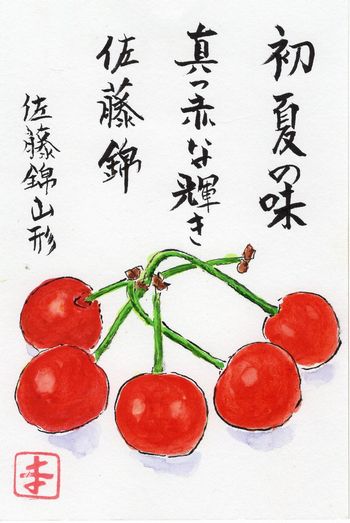 初夏の味
真っ赤な輝き
佐藤錦
佐藤錦山形